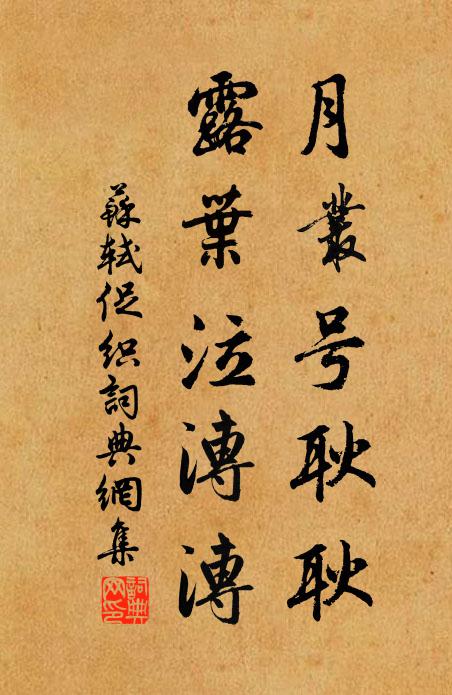 月叢号耿耿
露葉泣漙漙
蘇軾促织詞典網集
詞典
网印